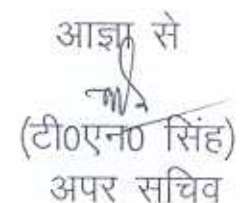 आज्ञा से
(टी0एन0 सिंह)
अपर सचिव